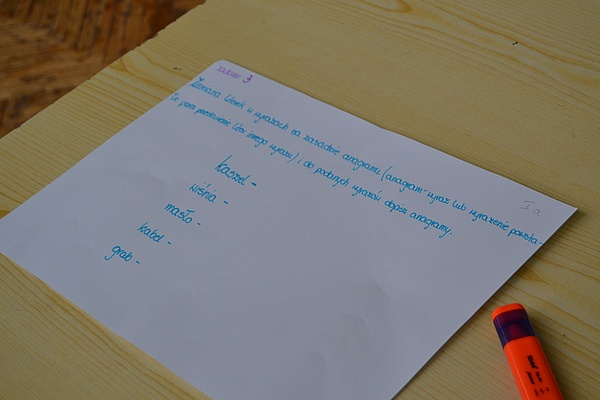 Zadanie 3
Zamiana liter w wyrazach na zasadzie anagramu (anagram-wyraz lub wyrażenie powsta-
łe przez przestawienie liter innego wyrazu) i do podanych wyrazów dopisz anagramy.
I a
kaszel -
wiśnia -
masło -
kabel -
grab -